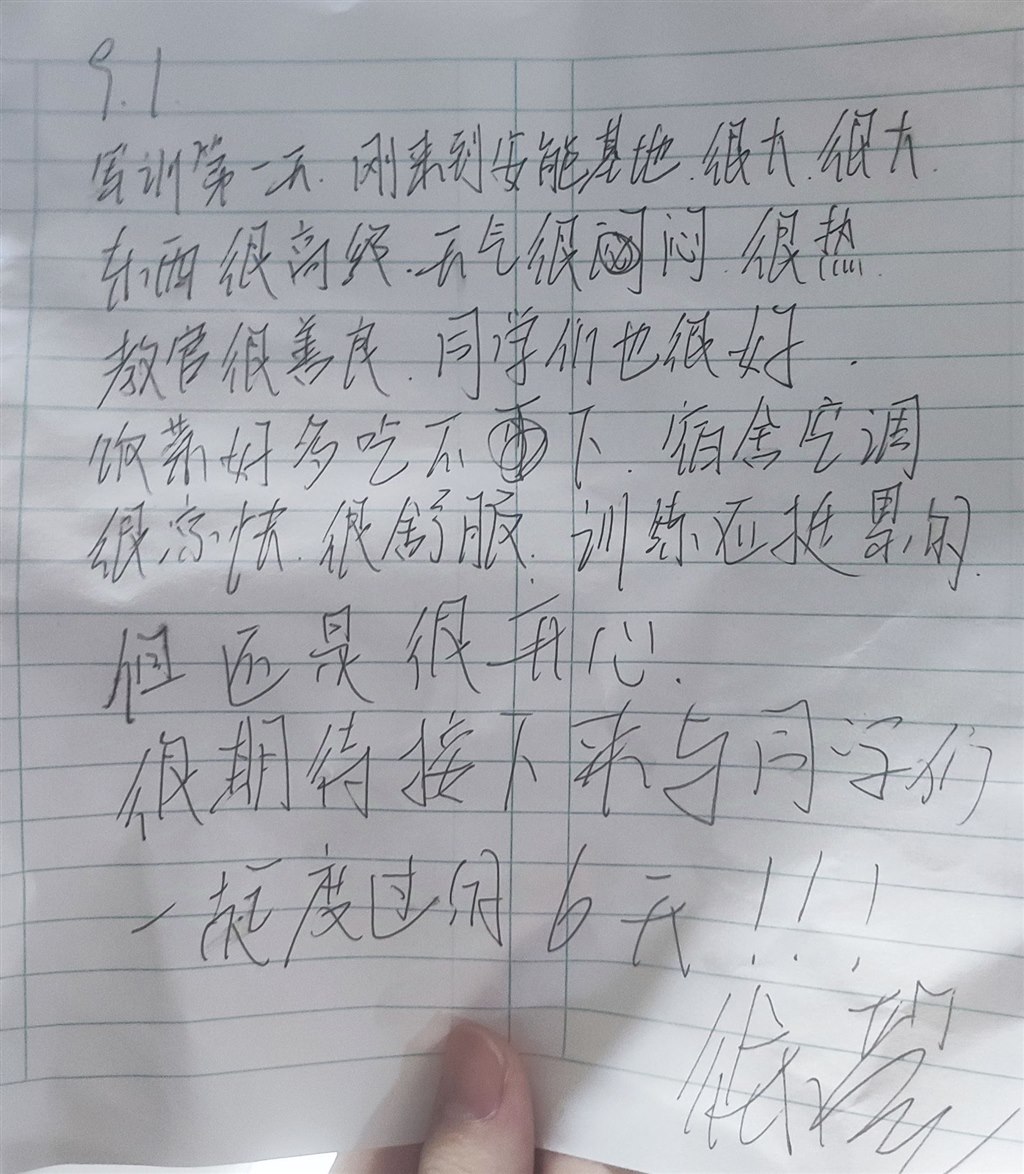 9.1
军训第一天.刚来到安能基地.很大.很大.
东西很高级.天气很闷.很热.
教官很善良.同学们也很好.
饭菜好多吃不下.宿舍空调
很凉快.很舒服.训练还挺累的.
但还是很开心.
很期待接下来与同学们
一起度过的6天!!!